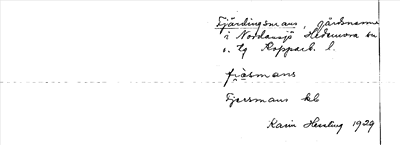 Fjärdingsmans, gårdsnamn
i Nordansjö Hedemora sn
o. tg Kopparb. l.
fjäsmans
Fjersmans kb
Karin Hessling 1929